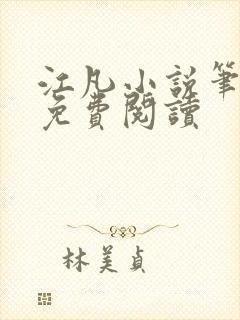 江凡小說筆
免費閱讀
林美貞